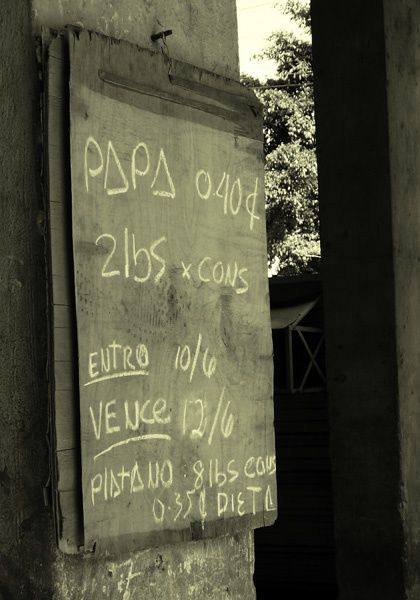 PAPA 0.40¢
2lbs x CONS
ENTRO 10/6
VENCE 12/6
PlAtANO . 8lbs CONS
0.35¢ DIETA